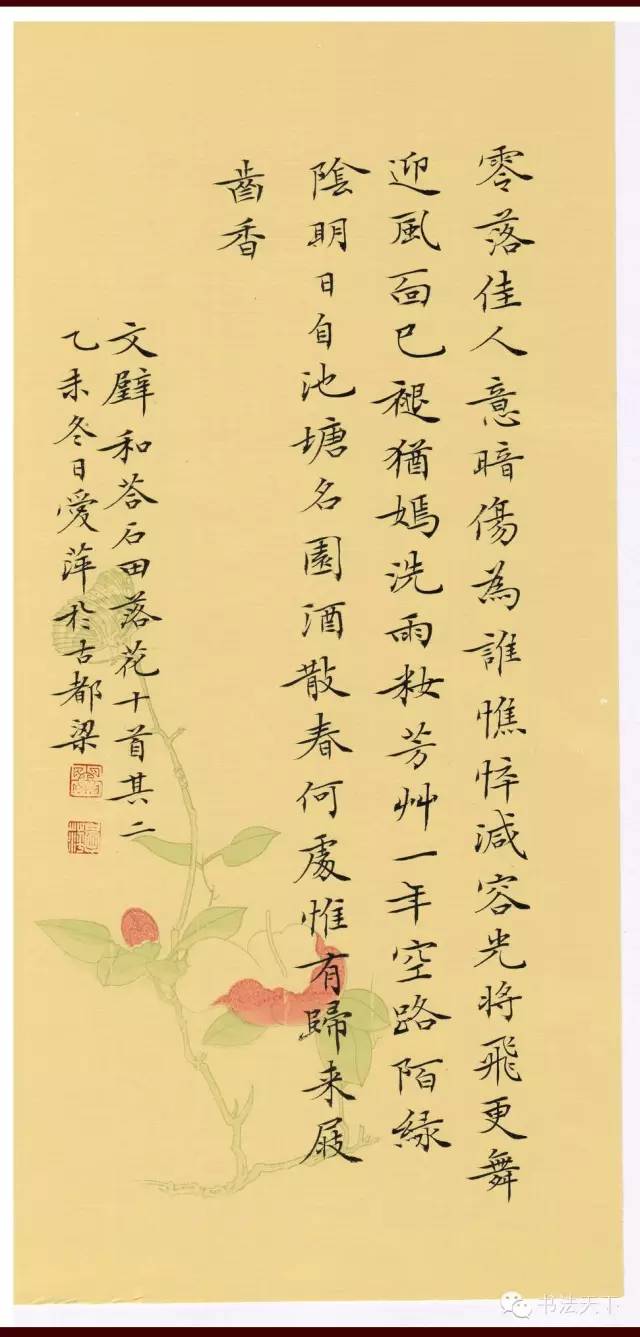 零落佳人意暗傷為誰憔悴減容光將飛更舞
迎風面已褪猶嫣洗雨妝芳艸一年空路陌緑
陰明日自池塘名園酒散春何處惟有歸来屐
齒香
文壁和荅石田落花十首其二
乙未冬日愛萍於古都梁
书法天下